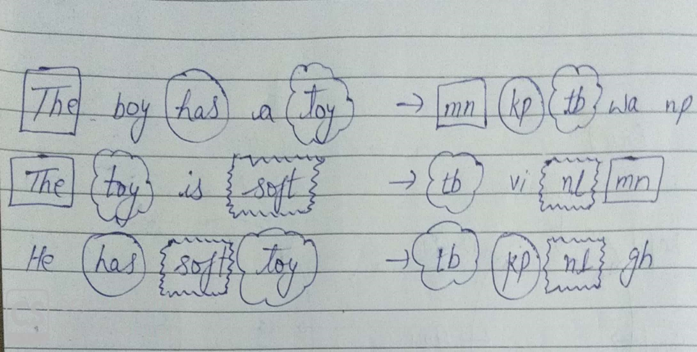 The boy has a toy → mn kp tb wa np
The toy is soft → tb vi nl mn
He has soft toy → tb kp nl gh